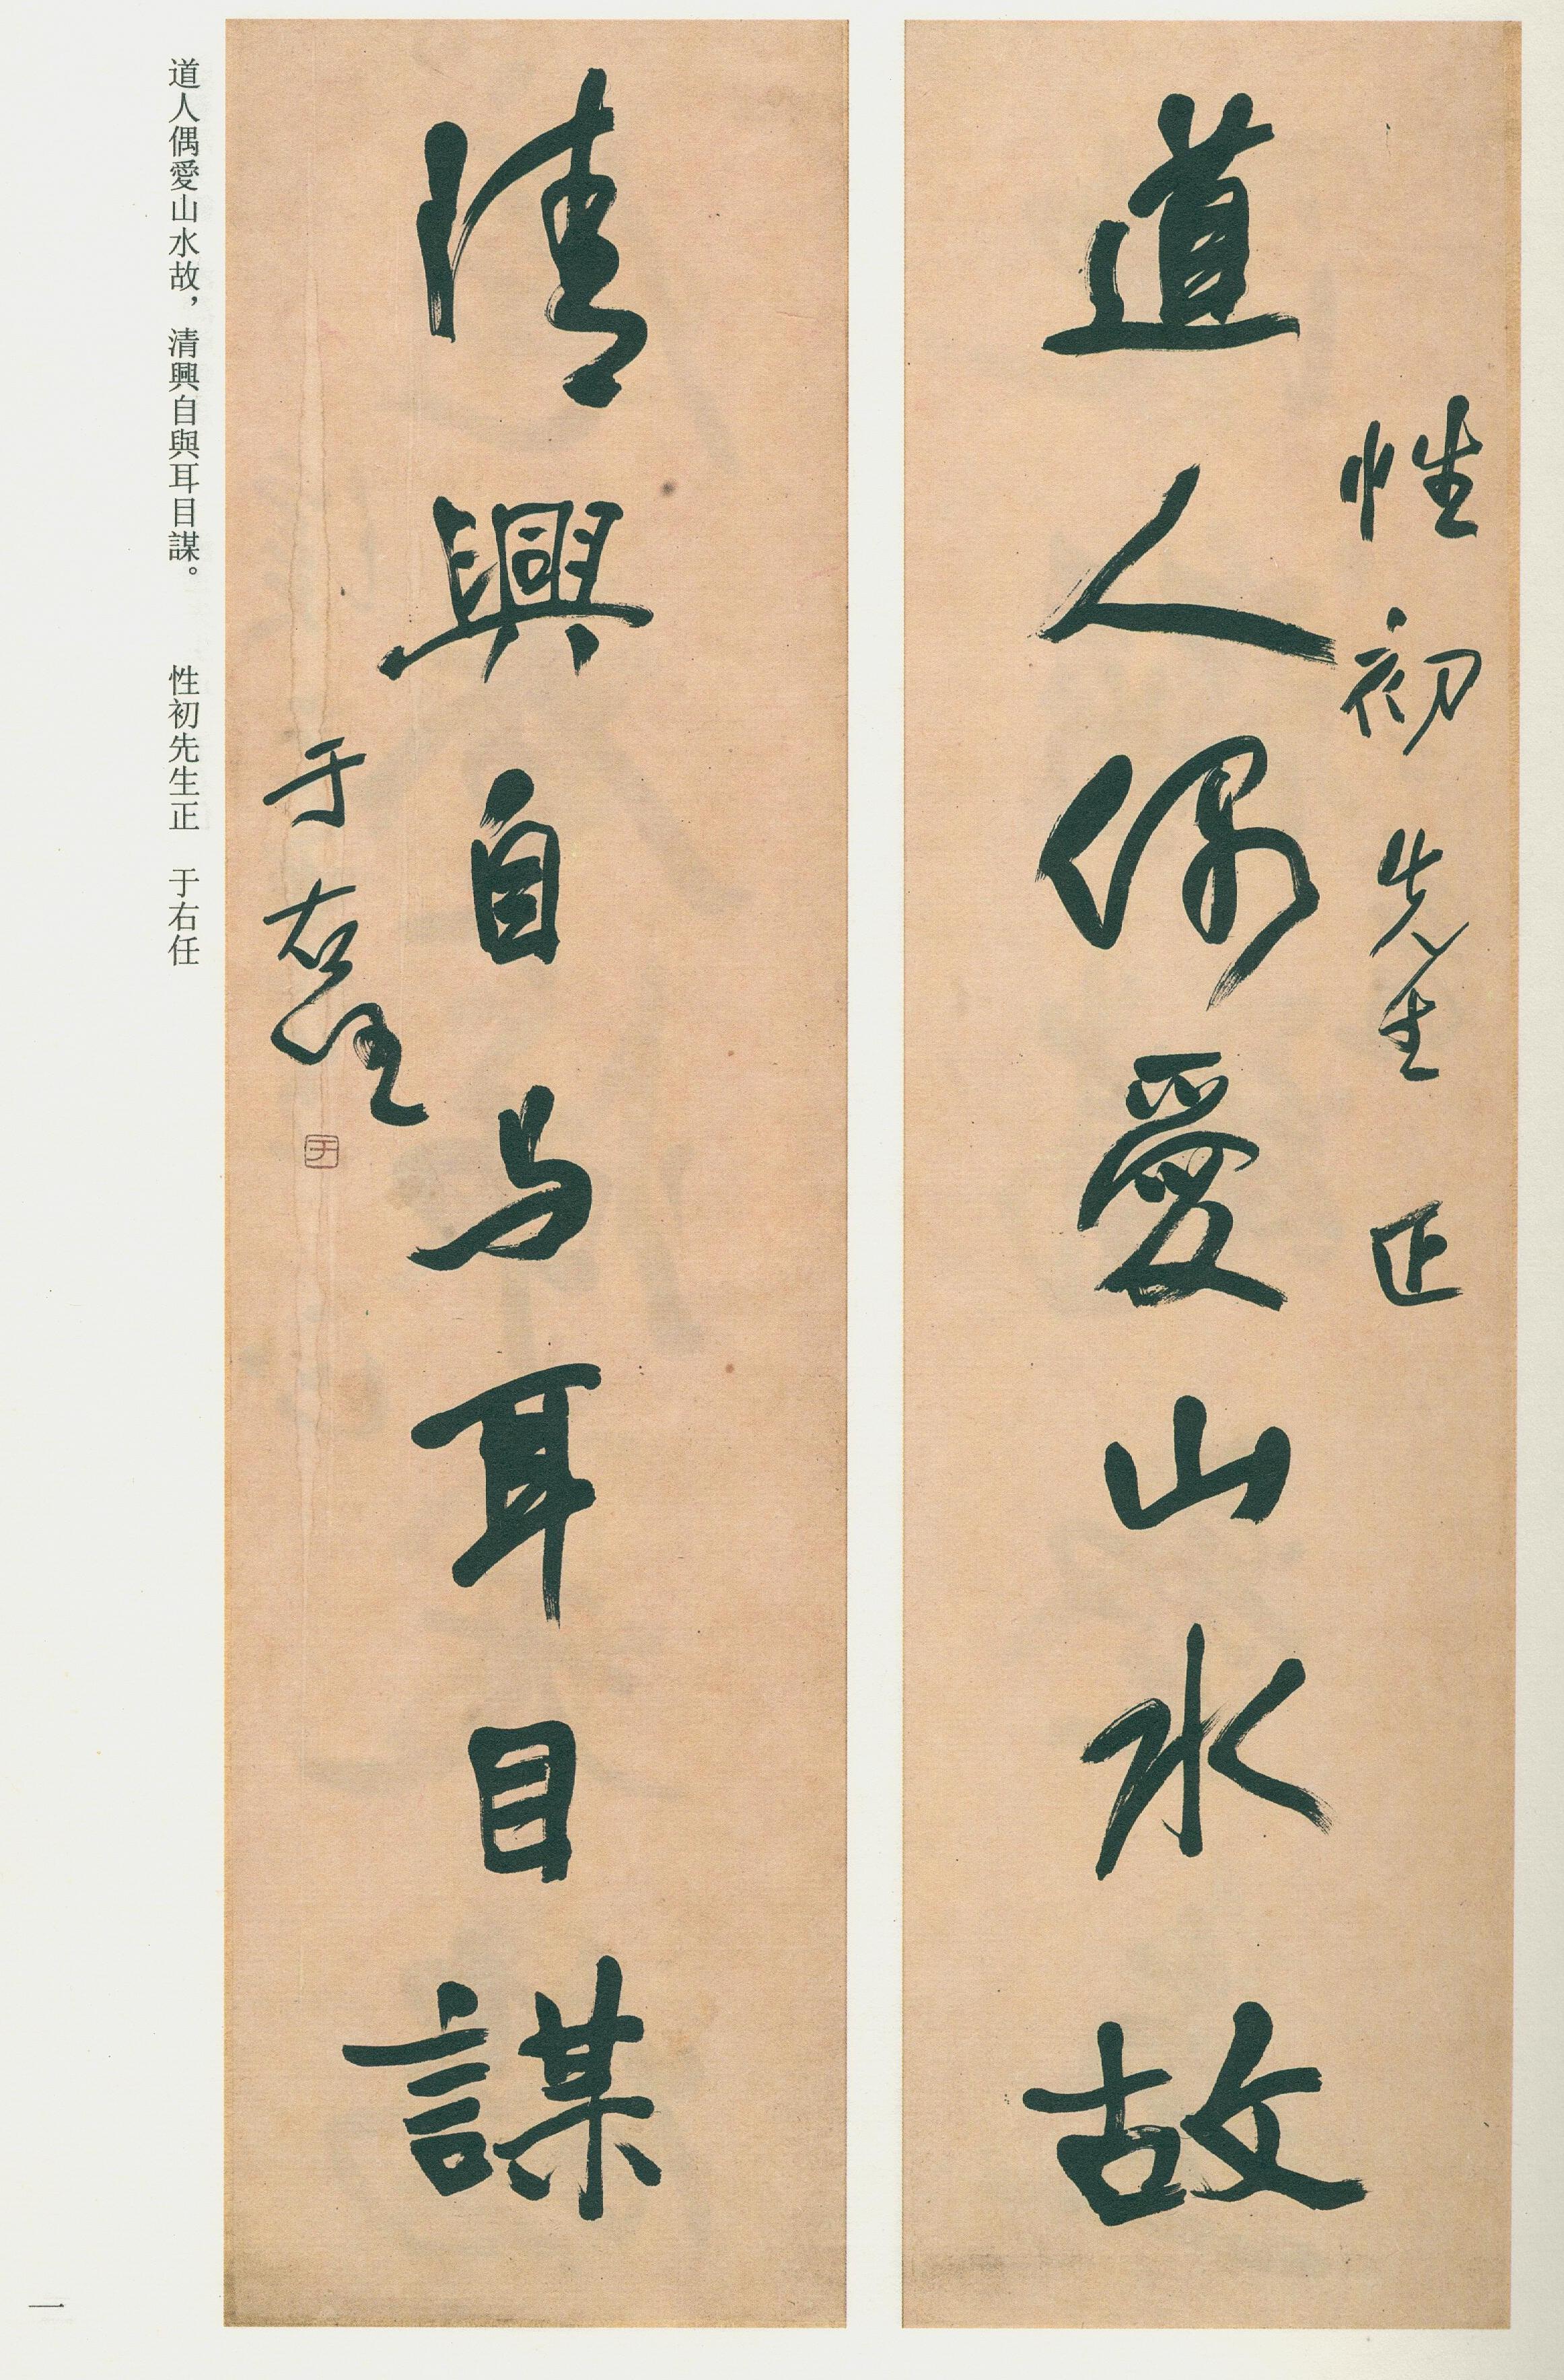 性初先生正
道人偶愛山水故
清興自与耳目謀
于右任
于
道人偶愛山水故，清興自與耳目謀。　性初先生正　于右任
一